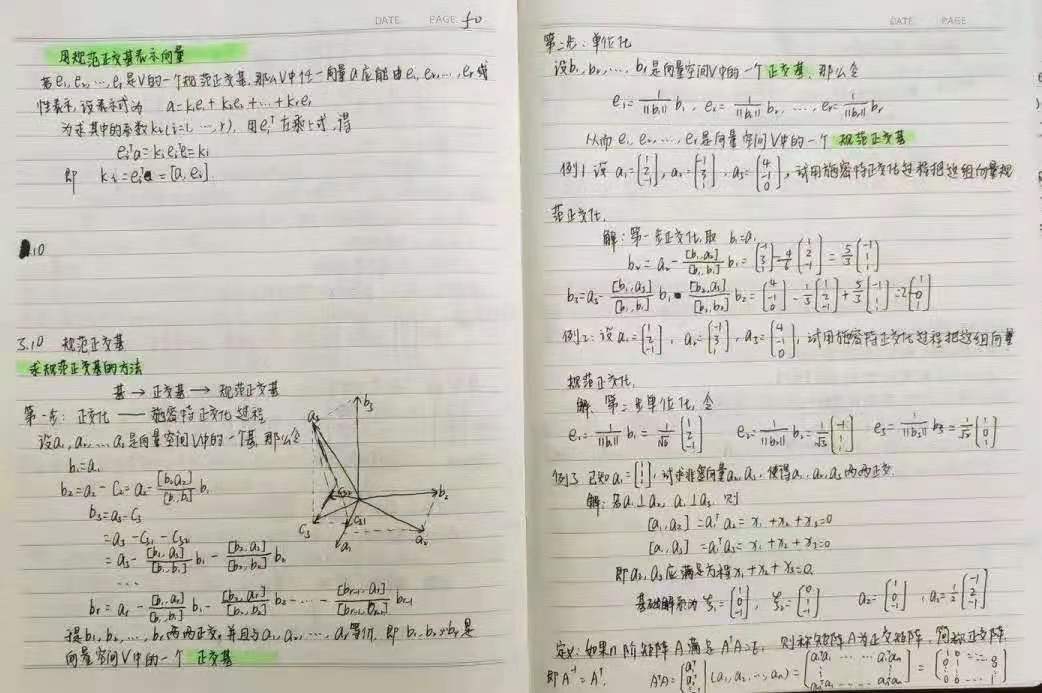 DATE PAGE 50
用规范正交基表示向量
若e₁,e₂,…,eᵣ是V的一个规范正交基,那么V中任一向量a应能由e₁,e₂,…,eᵣ线
性表示,设表示式为 a=k₁e₁+k₂e₂+…+kᵣeᵣ
为求其中的系数kᵢ(i=1,…,r),用eᵢᵀ左乘上式,得
eᵢᵀa=kᵢeᵢᵀeᵢ=kᵢ
即 kᵢ=eᵢᵀa=[a,eᵢ]
.10
5.10 规范正交基
求规范正交基的方法
基→正交基→规范正交基
第一步:正交化——施密特正交化过程
设a₁,a₂,…,aᵣ是向量空间V中的一个基,那么令
b₁=a₁
b₂=a₂-c₂=a₂-[b₁,a₂]/[b₁,b₁] b₁
b₃=a₃-c₃
=a₃-c₃₁-c₃₂
=a₃-[b₁,a₃]/[b₁,b₁] b₁-[b₂,a₃]/[b₂,b₂] b₂
…
bᵣ=aᵣ-[b₁,aᵣ]/[b₁,b₁] b₁-[b₂,aᵣ]/[b₂,b₂] b₂-…-[bᵣ₋₁,aᵣ]/[bᵣ₋₁,bᵣ₋₁] bᵣ₋₁
于是b₁,b₂,…,bᵣ两两正交,并且与a₁,a₂,…,aᵣ等价,即b₁,b₂,…,bᵣ是
向量空间V中的一个 正交基
b₃
a₃
c₃₂
b₂
c₃
c₃₁
a₁
a₂
DATE PAGE
第二步:单位化
设b₁,b₂,…,bᵣ是向量空间V中的一个正交基,那么令
e₁=1/||b₁|| b₁, e₂=1/||b₂|| b₂, …, eᵣ=1/||bᵣ|| bᵣ
从而e₁,e₂,…,eᵣ是向量空间V中的一个 规范正交基
例1:设a₁=(1 2 -1),a₂=(-1 3 1),a₃=(4 -1 0),试用施密特正交化过程把这组向量规
范正交化.
解:第一步正交化,取 b₁=a₁
b₂=a₂-[b₁,a₂]/[b₁,b₁] b₁=(-1 3 1)-4/6(1 2 -1)=5/3(-1 1 1)
b₃=a₃-[b₁,a₃]/[b₁,b₁] b₁-[b₂,a₃]/[b₂,b₂] b₂=(4 -1 0)-1/3(1 2 -1)+5/3(-1 1 1)=2(1 0 1)
例2:设a₁=(1 2 -1), a₂=(-1 3 1), a₃=(4 -1 0),试用施密特正交化过程把这组向量
规范正交化.
解:第二步单位化,令
e₁=1/||b₁|| b₁=1/√6(1 2 -1) e₂=1/||b₂|| b₂=1/√3(-1 1 1) e₃=1/||b₃|| b₃=1/√2(1 0 1)
例3 已知a₁=(1 1 1),试求非零向量a₂,a₃,使得a₁,a₂,a₃两两正交.
解:若a₁⊥a₂,a₁⊥a₃,则
[a₁,a₂]=a₁ᵀa₂=x₁+x₂+x₃=0
[a₁,a₃]=a₁ᵀa₃=x₁+x₂+x₃=0
即a₂,a₃应满足方程x₁+x₂+x₃=0.
基础解系为ξ₁=(1 0 -1),ξ₂=(0 1 -1) a₂=(1 0 -1),a₃=1/2(-1 2 -1)
定义:如果n阶矩阵A满足AᵀA=E,则称矩阵A为正交矩阵,简称正交阵.
即A⁻¹=Aᵀ.